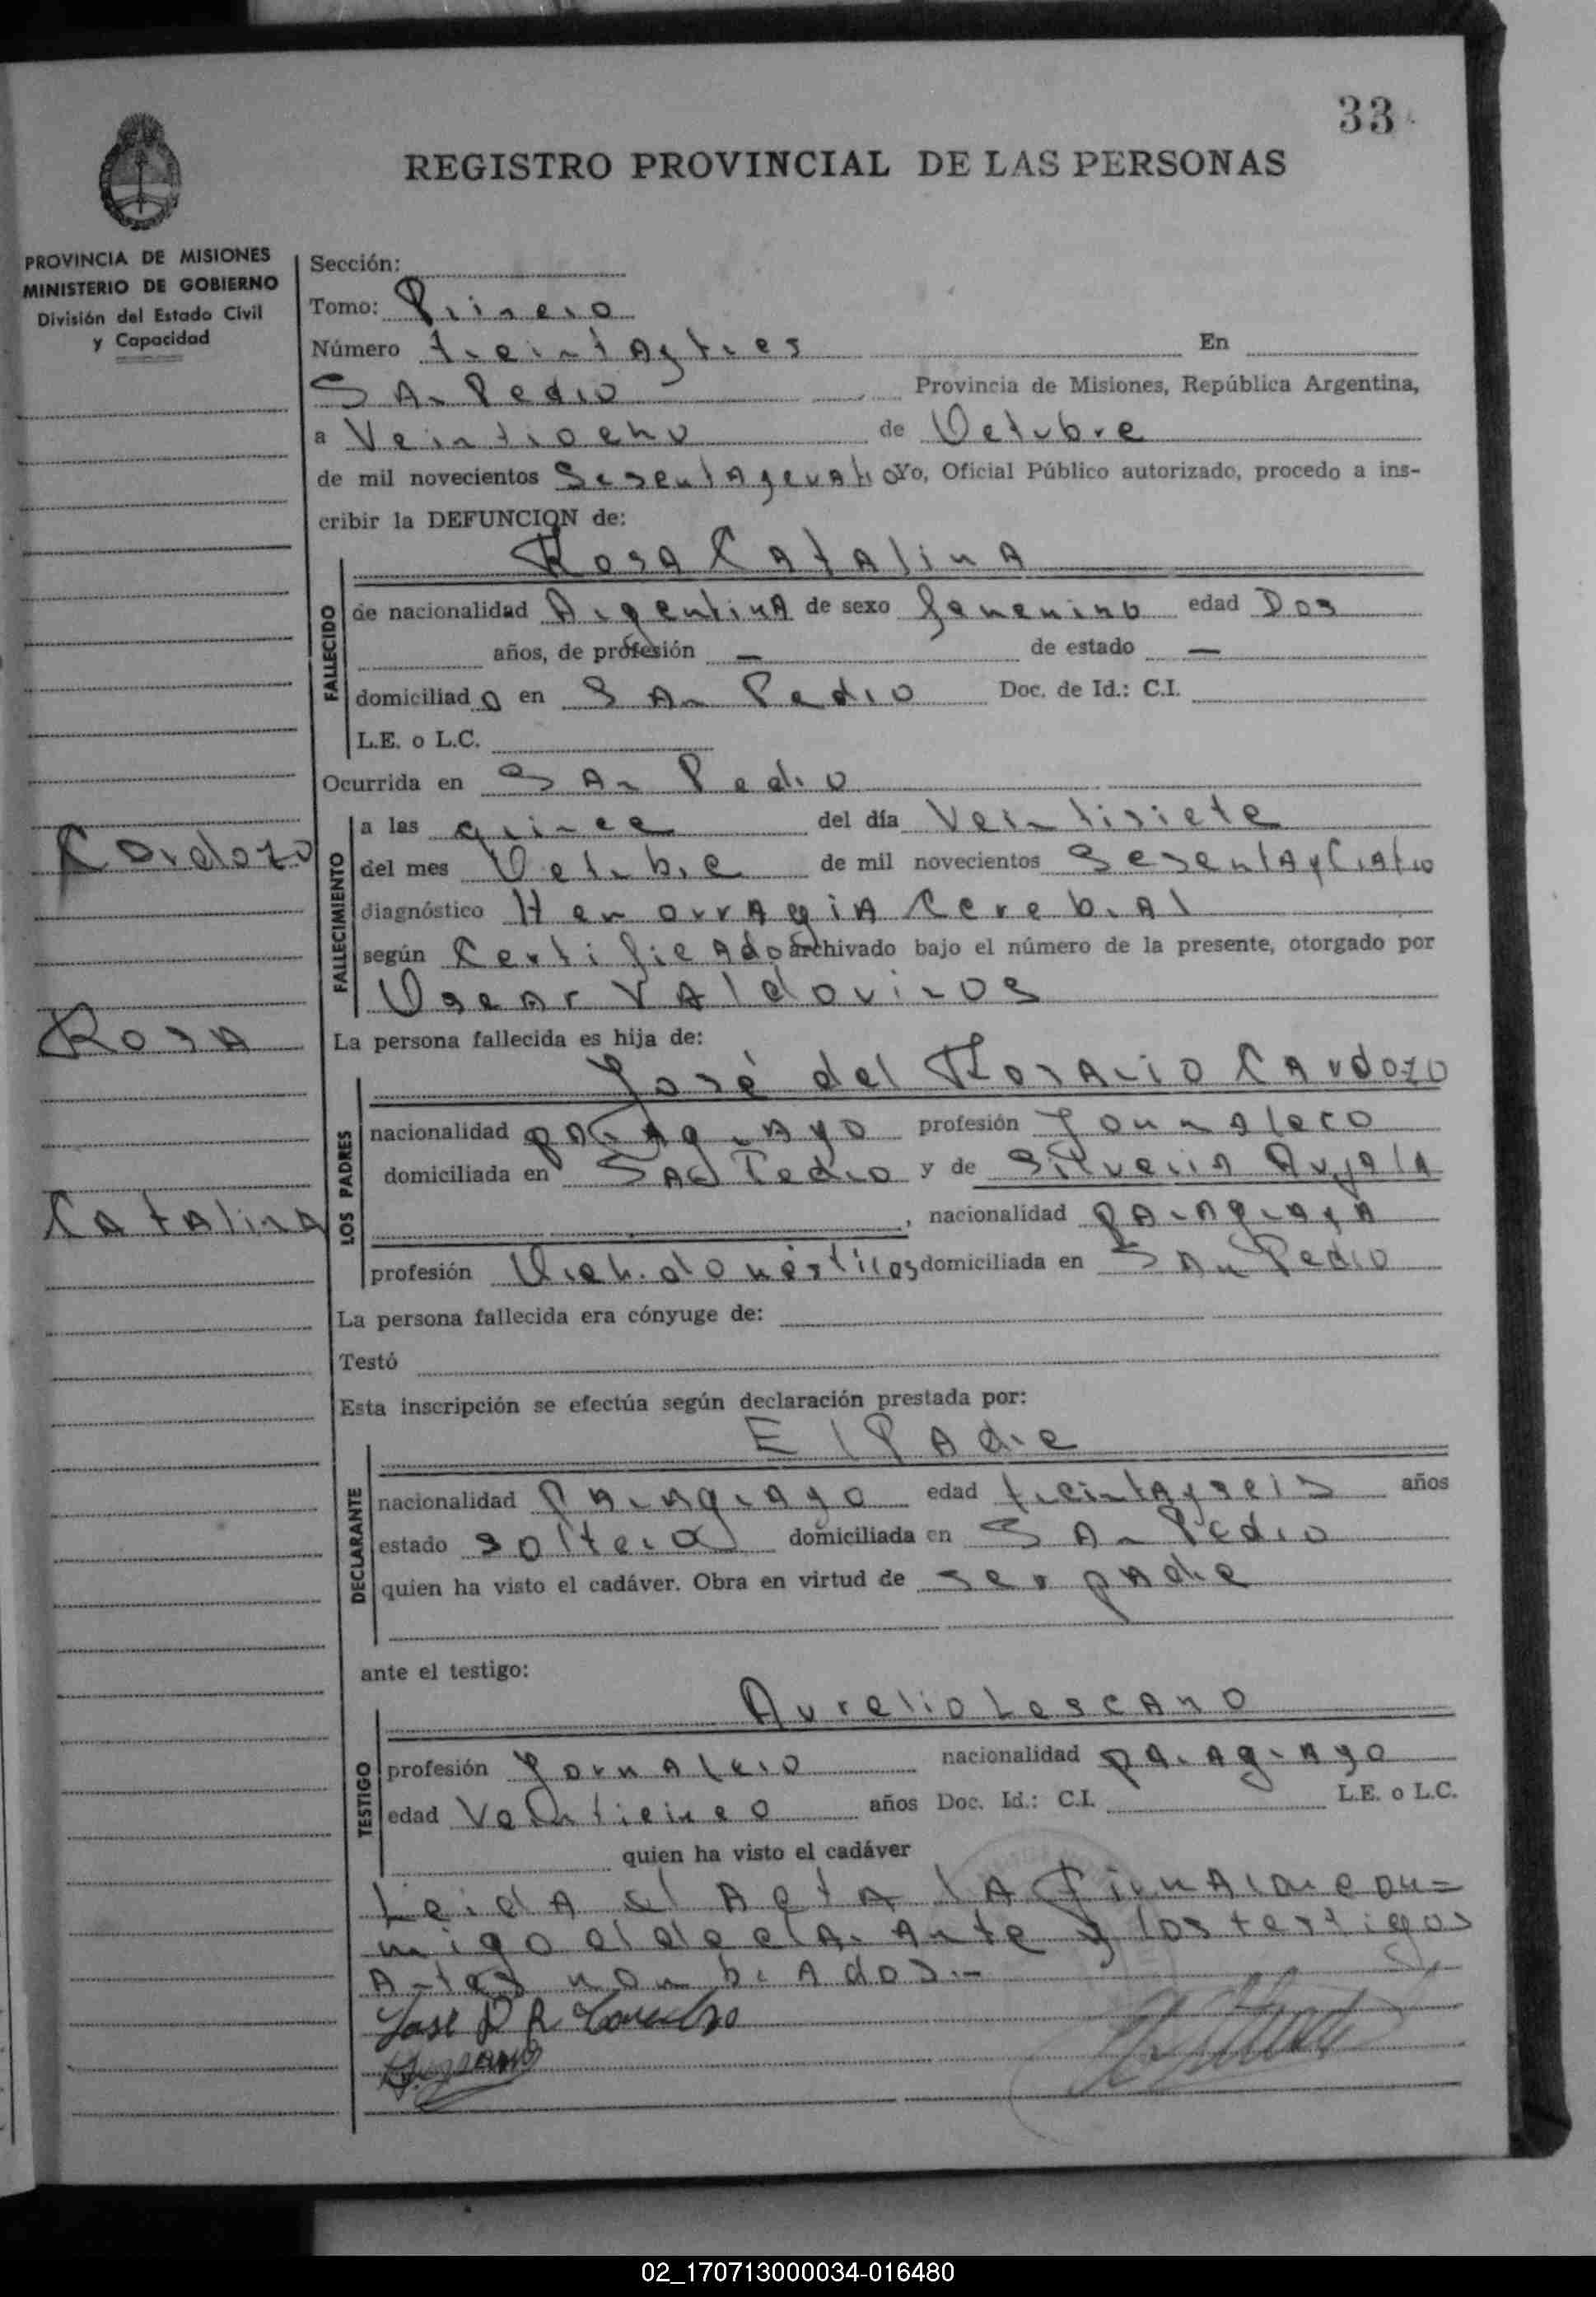 33
REGISTRO PROVINCIAL DE LAS PERSONAS
PROVINCIA DE MISIONES
MINISTERIO DE GOBIERNO
División del Estado Civil
y Capacidad
Cardozo
Rosa
Catalina
Sección:
Tomo: Primero
Número treintaytres En
San Pedro Provincia de Misiones, República Argentina,
a Veintiocho de Octubre
de mil novecientos Sesentaycuatro Yo, Oficial Público autorizado, procedo a ins-
cribir la DEFUNCION de:
Rosa Catalina
FALLECIDO
de nacionalidad Argentina de sexo femenino edad Dos
años, de profesión — de estado —
domiciliad a en San Pedro Doc. de Id.: C.I.
L.E. o L.C.
Ocurrida en San Pedro
FALLECIMIENTO
a las quince del día Veintisiete
del mes Octubre de mil novecientos SesentayCuatro
diagnóstico Hemorragia Cerebral
según Certificado archivado bajo el número de la presente, otorgado por
Oscar Valdovinos
La persona fallecida es hija de:
José del Rosario Cardozo
LOS PADRES
nacionalidad paraguayo profesión Jornalero
domiciliada en San Pedro y de Silveria Ayala
, nacionalidad paraguaya
profesión Queh. domésticos domiciliada en San Pedro
La persona fallecida era cónyuge de:
Testó
Esta inscripción se efectúa según declaración prestada por:
El Padre
DECLARANTE
nacionalidad Paraguayo edad treintayseis años
estado soltero domiciliada en San Pedro
quien ha visto el cadáver. Obra en virtud de ser padre
ante el testigo:
Aurelio Lescano
TESTIGO
profesión Jornalero nacionalidad paraguayo
edad Veinticinco años Doc. Id.: C.I. L.E. o L.C.
quien ha visto el cadáver
Leida el Acta la firman con-
migo el declarante y los testigos
Antes nombrados.-
José D R Cardozo
02_170713000034-016480